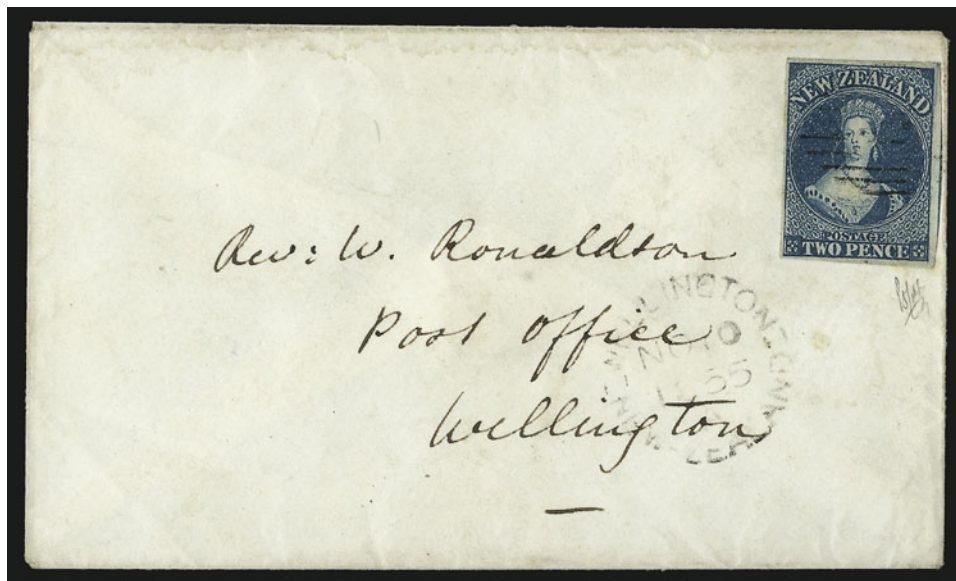 NEW ZEALAND
POSTAGE
TWO PENCE
Rev: W. Ronaldson
Post Office
Wellington
WELLINGTON
NO
NEW-ZEALAND